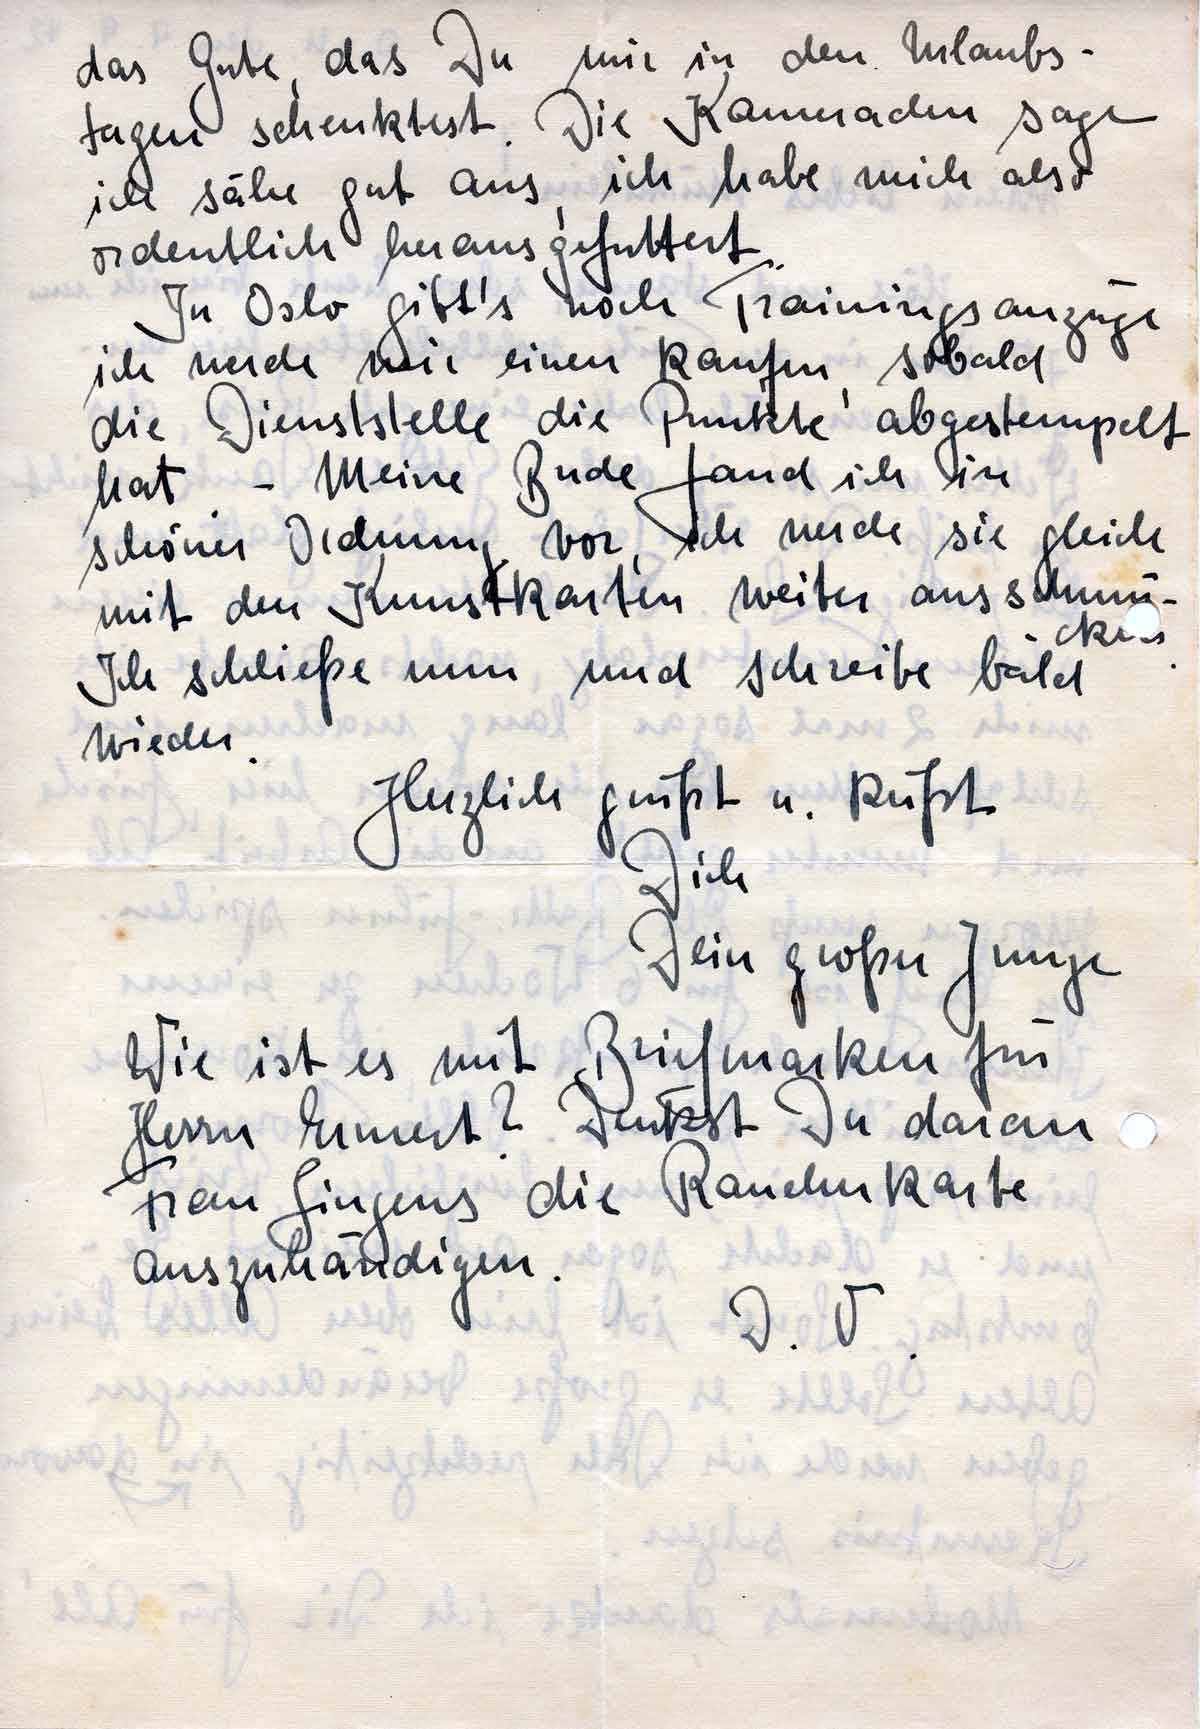 das Gute, das Du mir in den Urlaubs-
tagen schenktest. Die Kameraden sage
ich sähe gut aus, ich habe mich also
ordentlich herausgefuttert.
In Oslo gibt's noch Trainingsanzüge
ich werde mir einen kaufen, sobald
die Dienststelle die Punkte abgestempelt
hat. - Meine Bude fand ich in
schöner Ordnung vor, ich werde sie gleich
mit den Kunstkarten weiter ausschmü-
cken.
Ich schließe nun und schreibe bald
wieder.
Herzlich grüßt u. küßt
Dich
Dein großer Junge
Wie ist es mit Briefmarken für
Herrn Ermert? Denkst Du daran
Frau die Raucherkarte
auszuhändigen.
D. O.